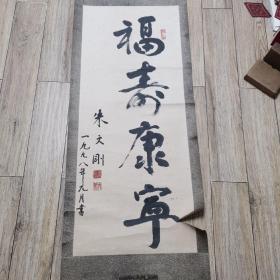 福寿康宁
朱文刚
一九九八年九月书